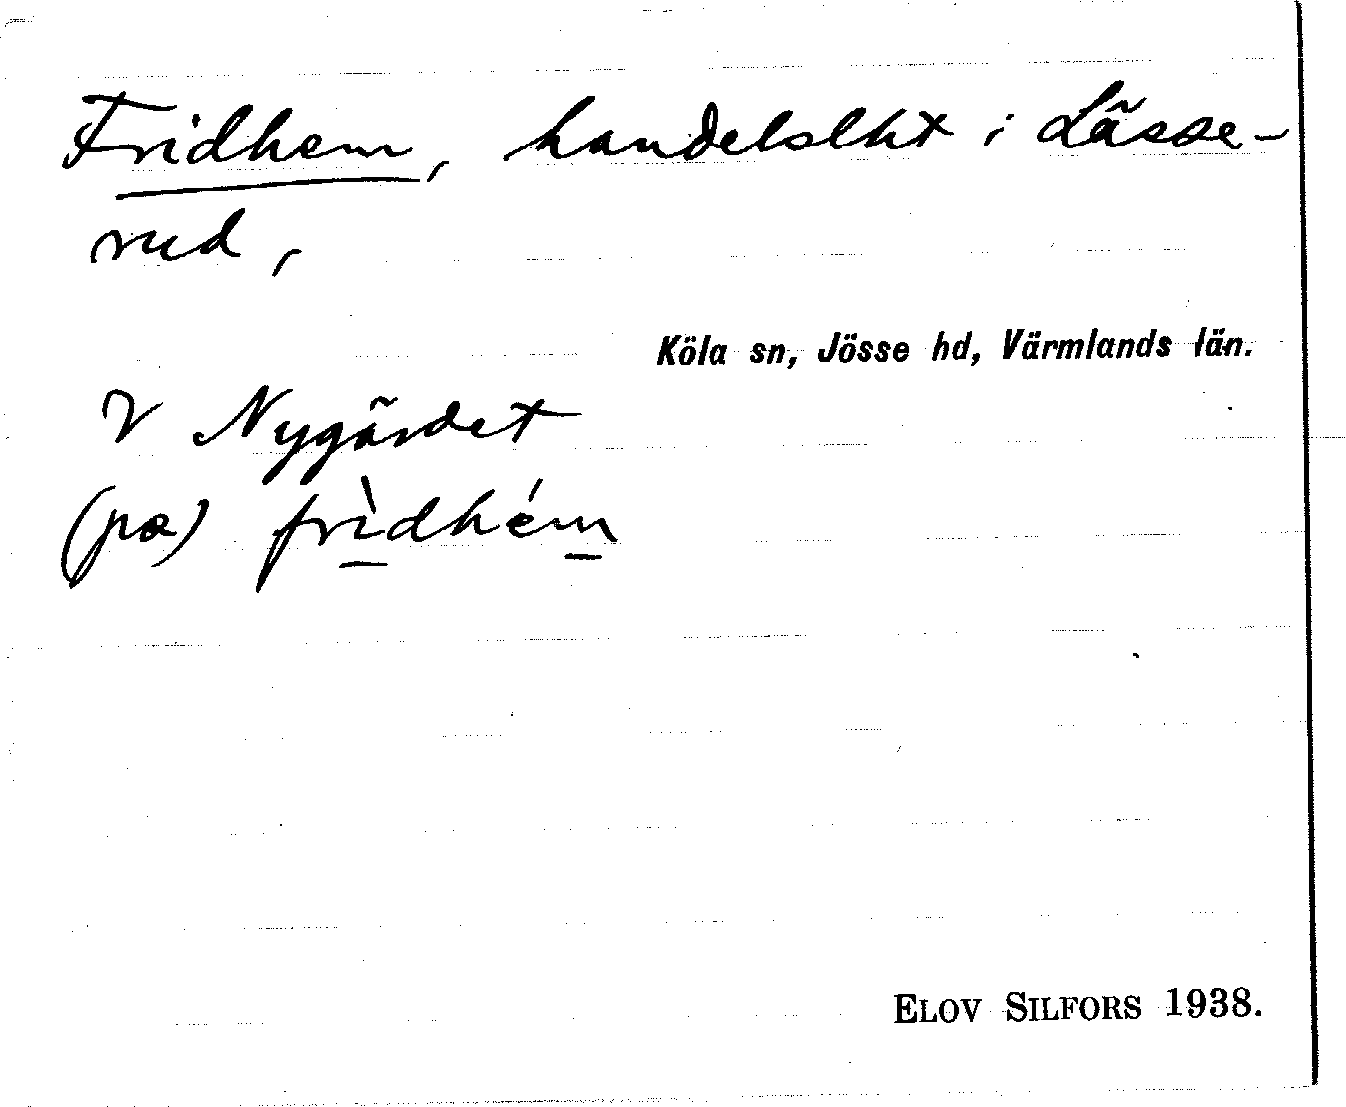 Fridhem, handelslht i Lässe-
rud,
Köla sn, Jösse hd, Värmlands län.
V Nygärdet
(pa) frì̲dhém̲
ELOV SILFORS 1938.